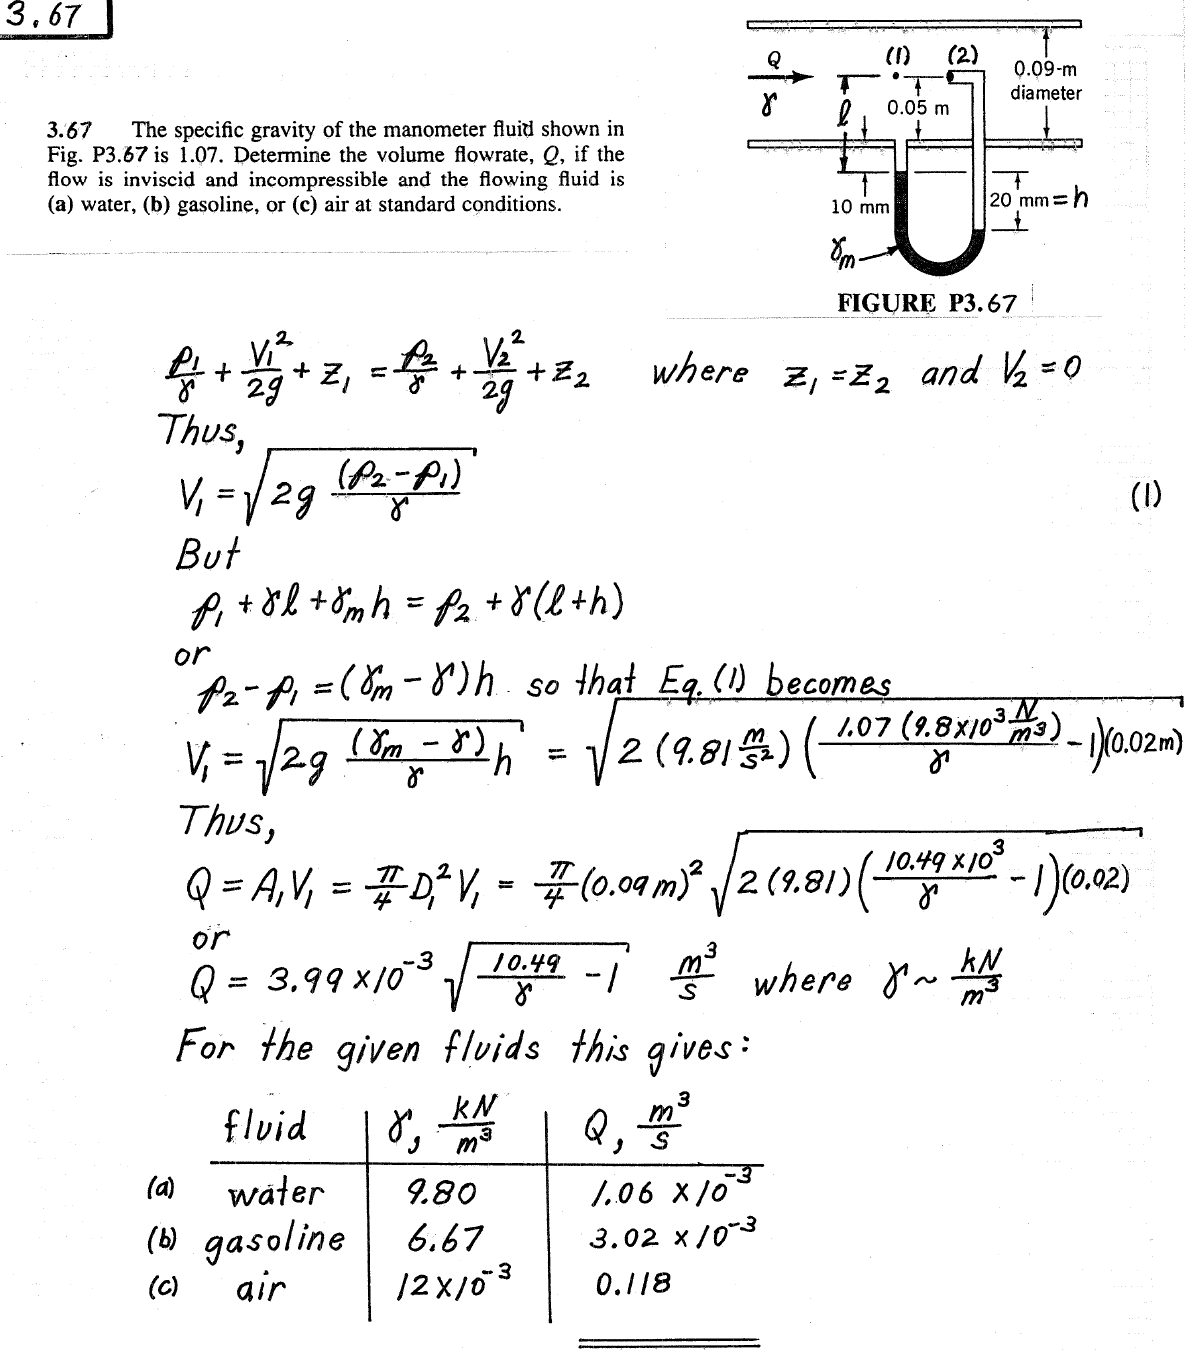 3.67
3.67 The specific gravity of the manometer fluid shown in
Fig. P3.67 is 1.07. Determine the volume flowrate, Q, if the
flow is inviscid and incompressible and the flowing fluid is
(a) water, (b) gasoline, or (c) air at standard conditions.
Q
γ
(1)
(2)
0.09-m
diameter
ℓ
0.05 m
10 mm
20 mm = h
γm
FIGURE P3.67
p₁/γ + V₁²/2g + z₁ = p₂/γ + V₂²/2g + z₂ where z₁ = z₂ and V₂ = 0
Thus,
V₁ = √(2g (p₂ - p₁)/γ) (1)
But
p₁ + γℓ + γm h = p₂ + γ(ℓ + h)
or
p₂ - p₁ = (γm - γ)h so that Eq. (1) becomes
V₁ = √(2g (γm - γ)/γ h) = √(2 (9.81 m/s²) (1.07 (9.8×10³ N/m³)/γ - 1)(0.02m))
Thus,
Q = A₁V₁ = π/4 D₁² V₁ = π/4 (0.09 m)² √(2 (9.81)(10.49×10³/γ - 1)(0.02))
or
Q = 3.99×10⁻³ √(10.49/γ - 1) m³/s where γ ~ kN/m³
For the given fluids this gives:
fluid γ, kN/m³ Q, m³/s
(a) water 9.80 1.06 × 10⁻³
(b) gasoline 6.67 3.02 × 10⁻³
(c) air 12×10⁻³ 0.118